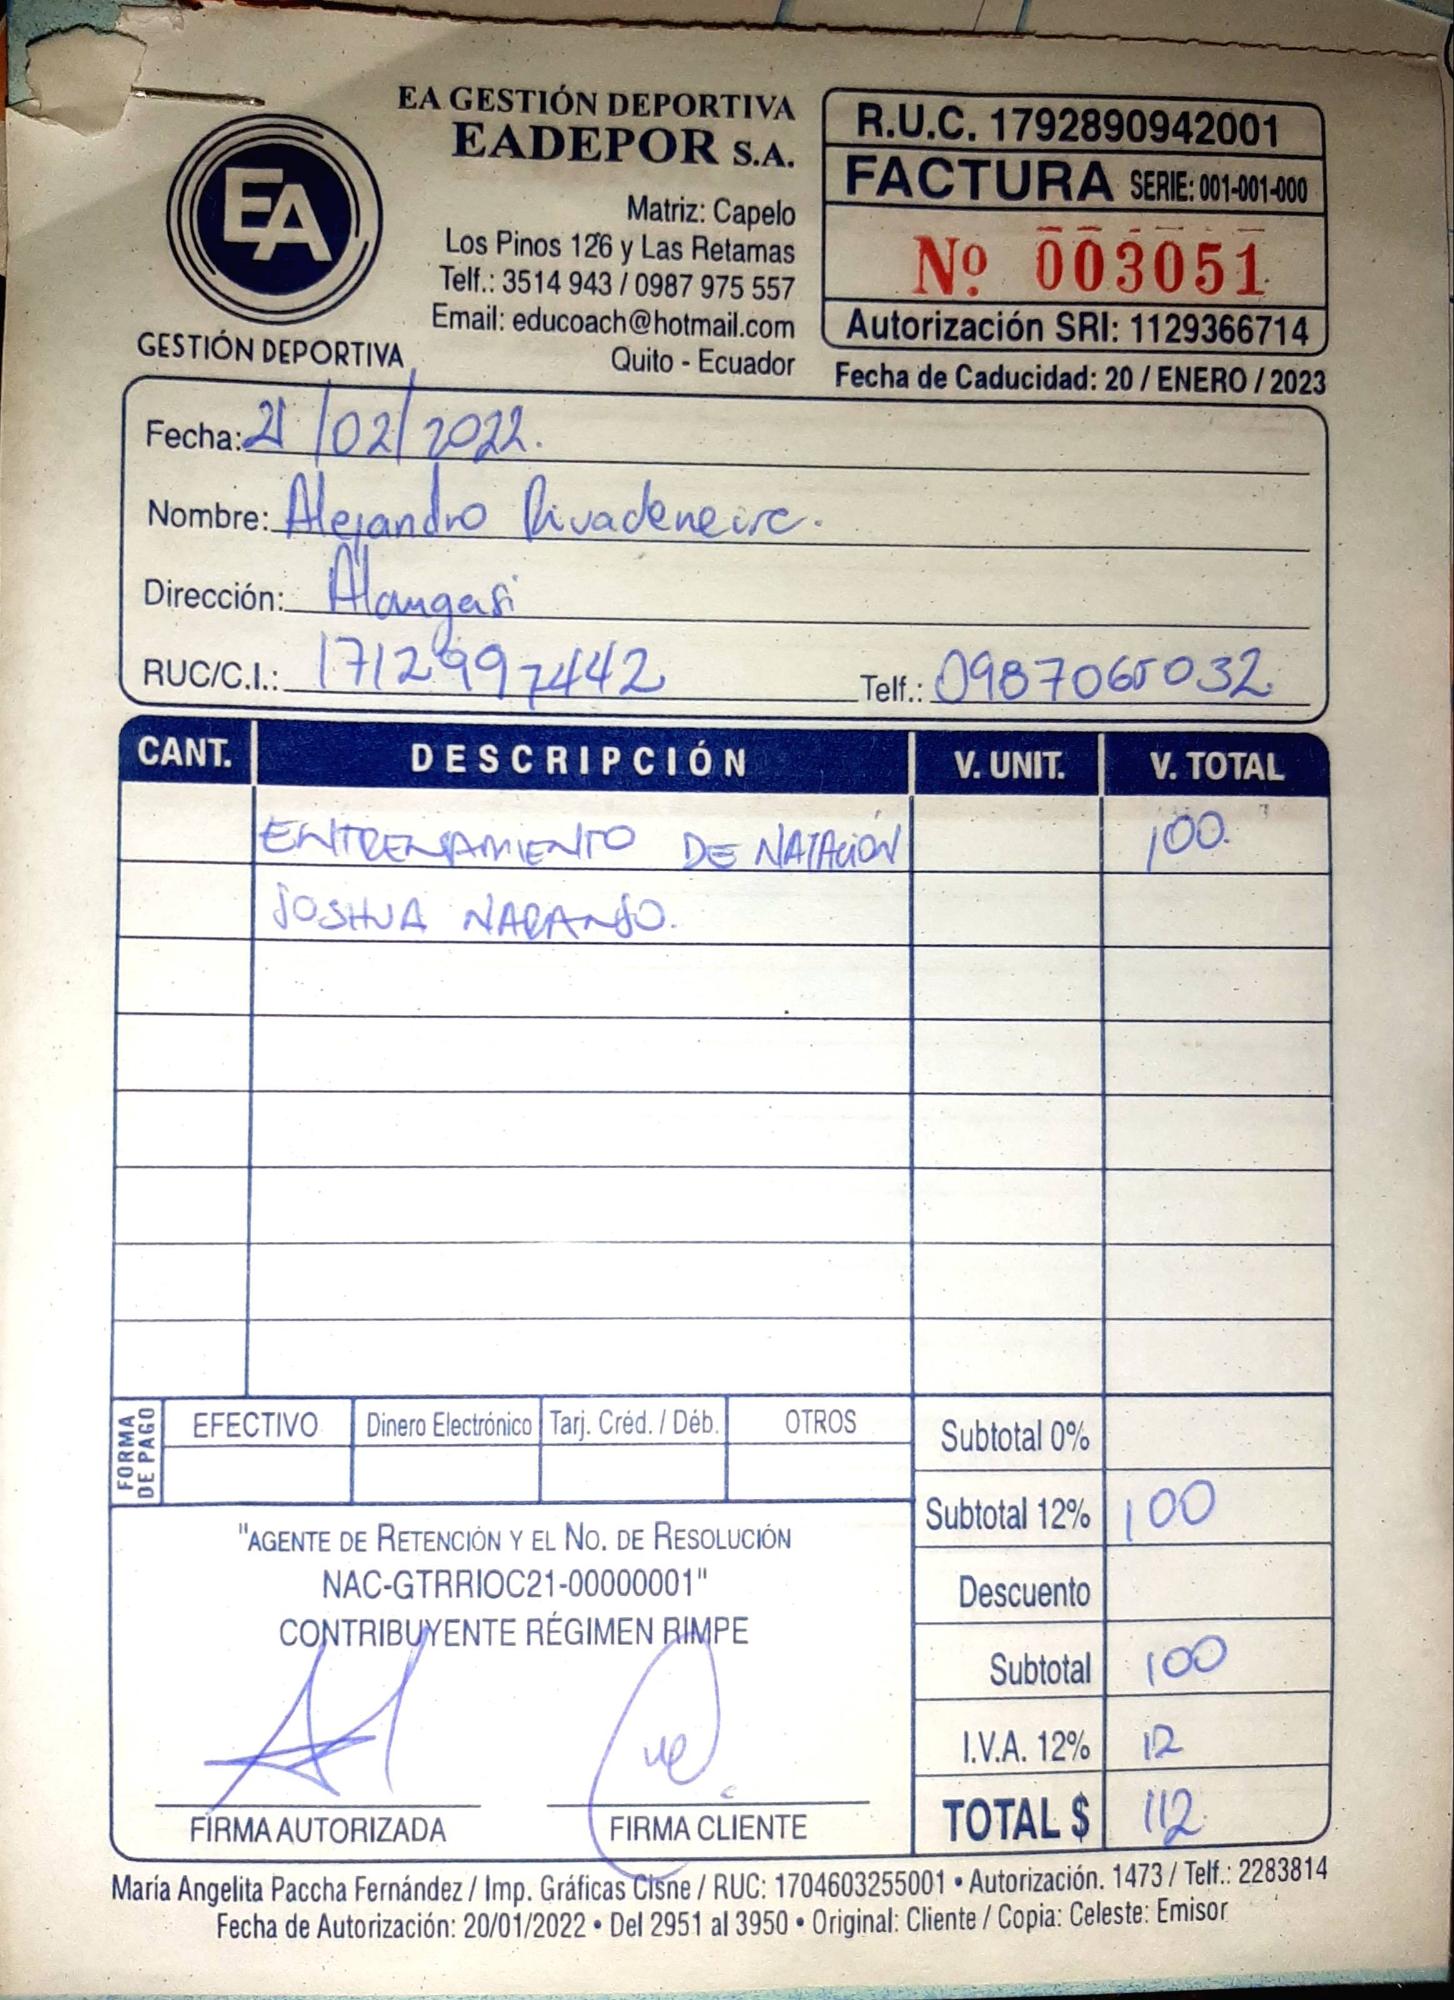 EA GESTIÓN DEPORTIVA
EADEPOR S.A.
EA
GESTIÓN DEPORTIVA
Matriz: Capelo
Los Pinos 126 y Las Retamas
Telf.: 3514 943 / 0987 975 557
Email: educoach@hotmail.com
Quito - Ecuador
R.U.C. 1792890942001
FACTURA SERIE: 001-001-000
Nº 003051
Autorización SRI: 1129366714
Fecha de Caducidad: 20 / ENERO / 2023
Fecha: 21/02/2022.
Nombre: Alejandro Rivadeneira.
Dirección: Alangasi
RUC/C.I.: 1712997442 Telf.: 0987065032
CANT. DESCRIPCIÓN V. UNIT. V. TOTAL
ENTRENAMIENTO DE NATACIÓN 100.
JOSHUA NARANJO.
FORMA DE PAGO
EFECTIVO Dinero Electrónico Tarj. Créd. / Déb. OTROS
Subtotal 0%
Subtotal 12% 100
Descuento
Subtotal 100
I.V.A. 12% 12
TOTAL $ 112
"AGENTE DE RETENCIÓN Y EL NO. DE RESOLUCIÓN
NAC-GTRRIOC21-00000001"
CONTRIBUYENTE RÉGIMEN RIMPE
FIRMA AUTORIZADA FIRMA CLIENTE
María Angelita Paccha Fernández / Imp. Gráficas Cisne / RUC: 1704603255001 • Autorización. 1473 / Telf.: 2283814
Fecha de Autorización: 20/01/2022 • Del 2951 al 3950 • Original: Cliente / Copia: Celeste: Emisor